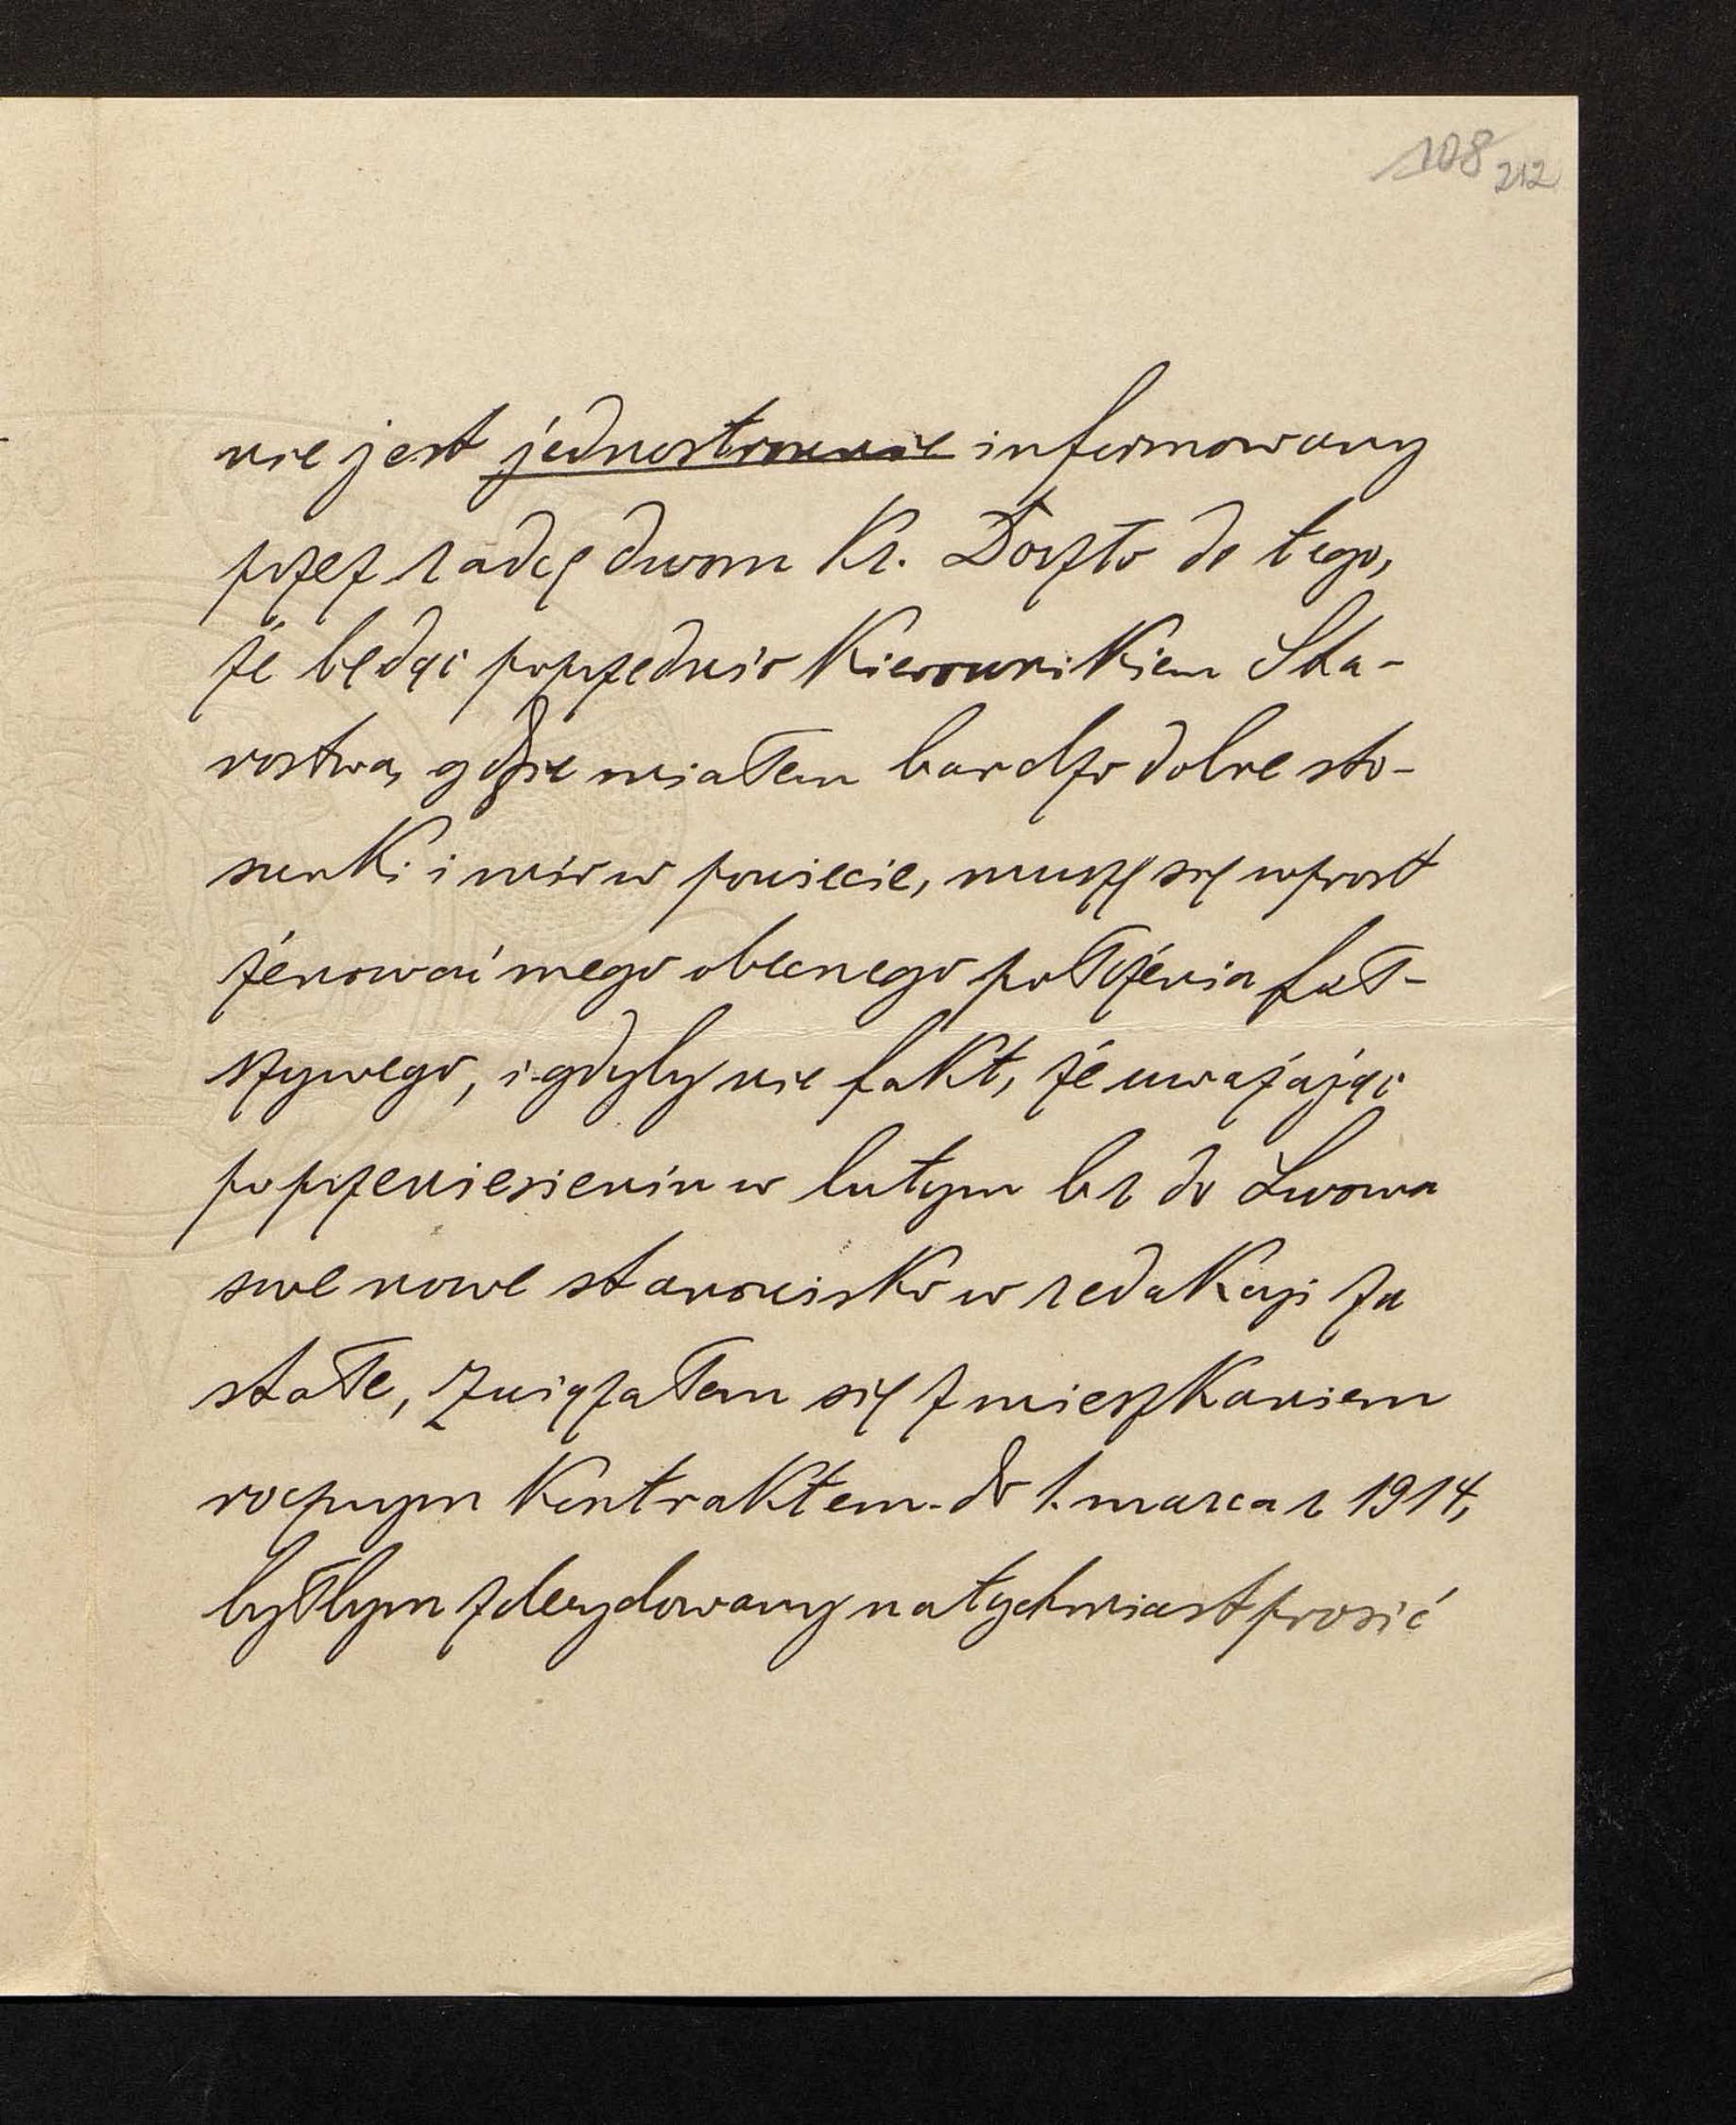 108 212
nie jest jednostronnie informowany
przez radcę dworu Kr. Doszło do tego,
że będąc poprzednio Kierownikiem Sta-
rostwa, gdzie miałem bardzo dobre sto-
sunki i mir w powiecie, muszę się wprost
żenować mego obecnego położenia fał-
szywego, i gdyby nie fakt, że uważając
po przeniesieniu w lutym br do Lwowa
swe nowe stanowisko w redakcji za
stałe, związałem się z mieszkaniem
rocznym Kontraktem do 1. marca r 1914,
byłbym zdecydowany natychmiast prosić